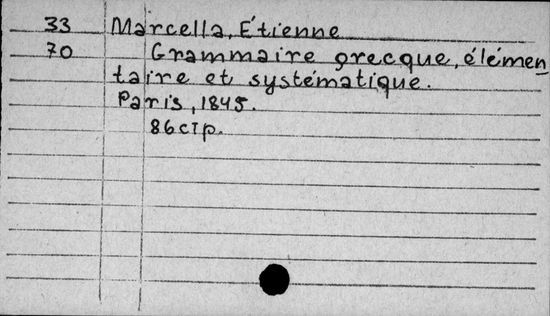 33 Marcella, Étienne
70 Grammaire grecque, élémen
taire et systématique.
Paris, 1845.
86 стр.